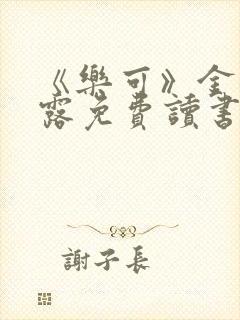 《樂可》金
露免費讀書
謝子長